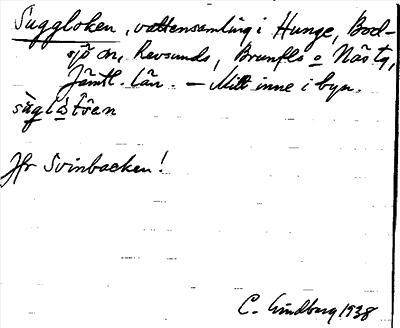 Suggloken, vattensamling i Hunge, Bod-
sjö sn, Revsunds, Brunflo o Näs tg,
Jämtl. län. — Mitt inne i byn.
Jfr Svinbacken!
C. Lindberg 1938